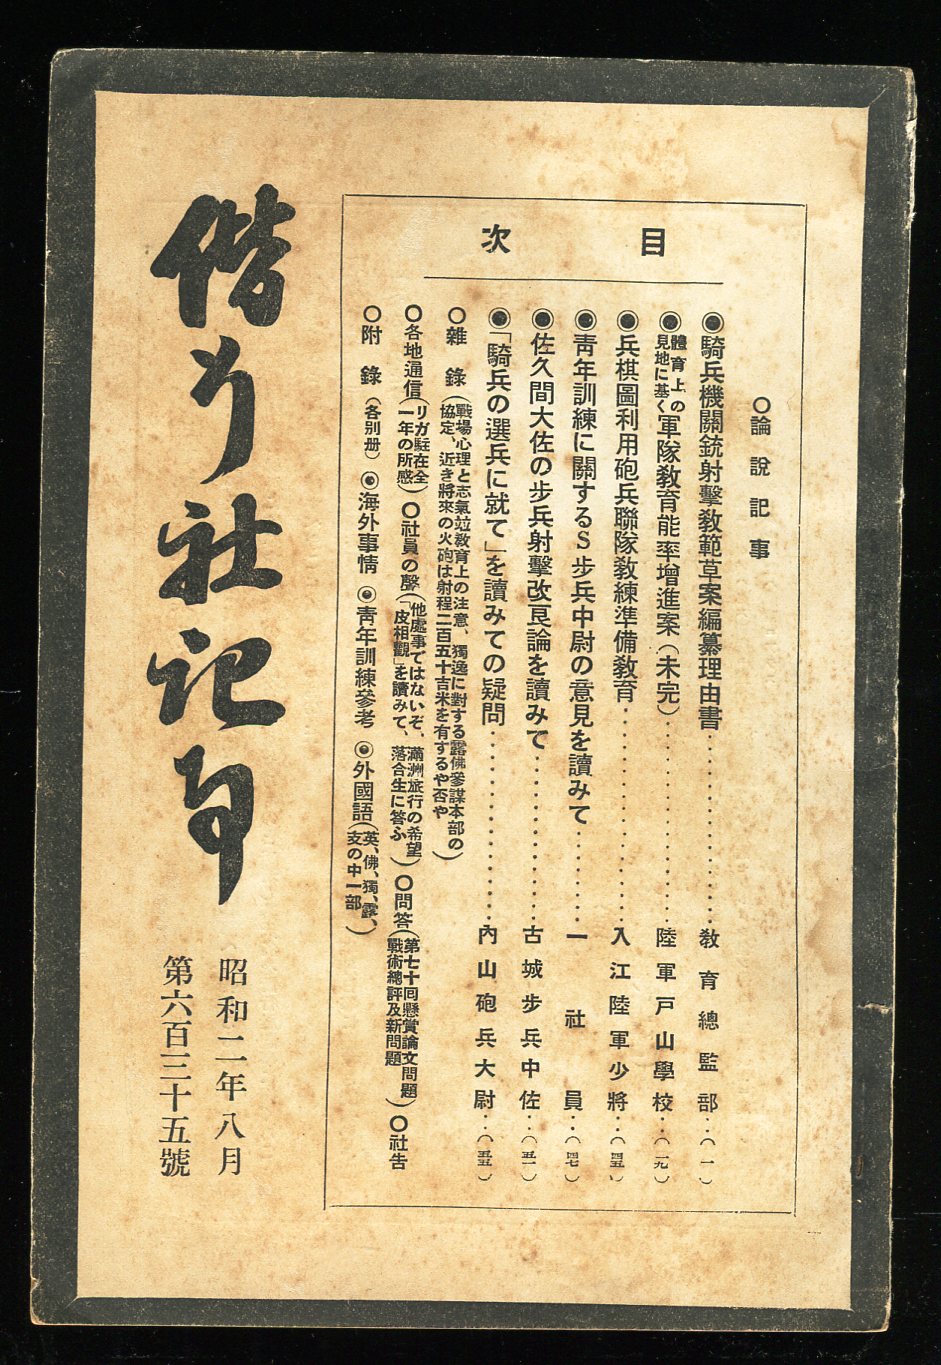 目次
〇論說記事
◉騎兵機關銃射擊教範草案編纂理由書……教育總監部…(一)
◉體育上の見地に基く軍隊教育能率增進案(未完)……陸軍戸山學校…(一九)
◉兵棋圖利用砲兵聯隊教練準備教育……入江陸軍少將…(四五)
◉靑年訓練に關するS步兵中尉の意見を讀みて……一社員…(四七)
◉佐久間大佐の步兵射擊改良論を讀みて……古城步兵中佐…(五一)
◉「騎兵の選兵に就て」を讀みての疑問……內山砲兵大尉…(五五)
〇雜錄(戰場心理と志氣竝教育上の注意、獨逸に對する露佛參謀本部の協定、近き將來の火砲は射程二百五十吉米を有するや否や)
〇各地通信(リガ駐在全一年の所感)〇社員の聲(他處事ではないぞ、滿洲旅行の希望「皮相觀」を讀みて、落合生に答ふ)〇問答(第七十回懸賞論文問題戰術總評及新問題)〇社告
〇附錄(各別册)◉海外事情◉靑年訓練參考◉外國語(英、佛、獨、露、支の中一部)
偕行社記事
昭和二年八月
第六百三十五號